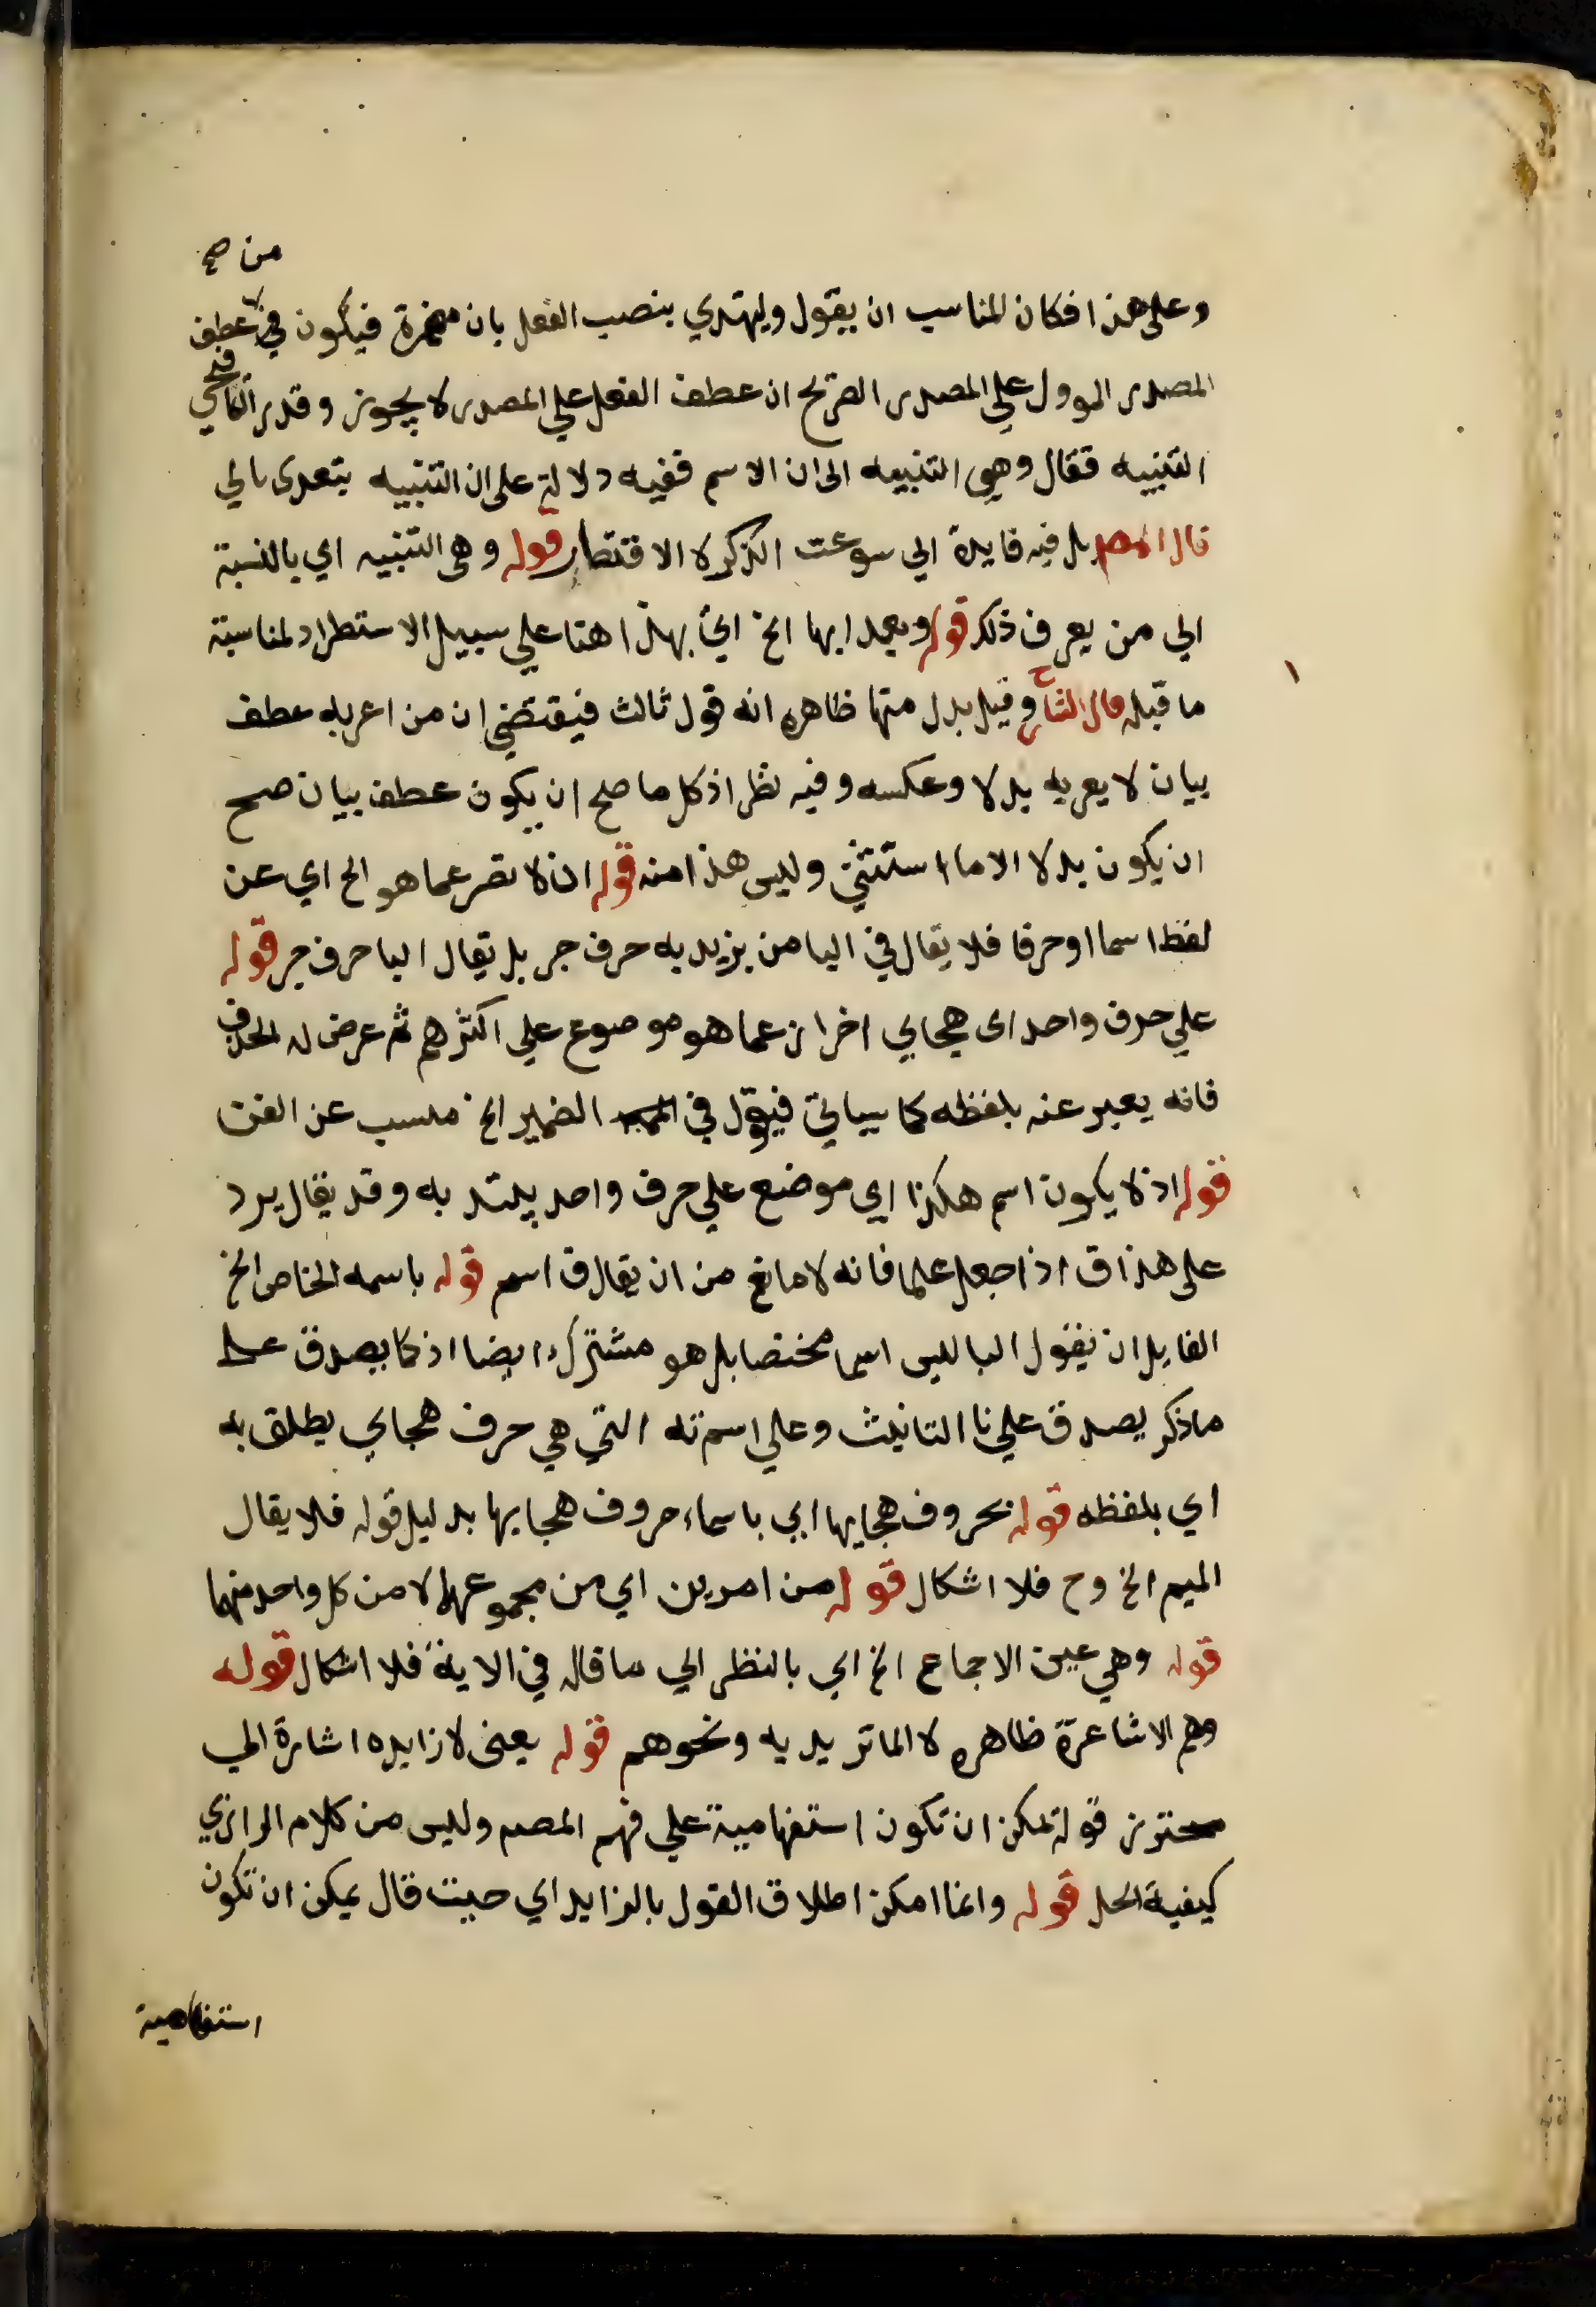 من صح
وعلى هذا فكان المناسب ان يقول وليهتدي بنصب الفعل بان مضمرة فيكون في عطف
المصدر الموول علي المصدر الصريح ان عطف الفعل علي المصدر لا يجوز وقدر الكافي
التنبيه فقال وهي التنبيه الى ان الاسم ففيه دلالة على ان التنبيه يتعدى بالي
قال المص بل فيه فايدة الي سوعت الذكر لا الاقتصار قوله وهي التنبيه اي بالنسبة
الي من يعرف ذلك قوله وبعدا بها الخ اي بهذا هنا علي سبيل الاستطراد لمناسبة
ما قبله قال الشارح وقيل بدل منها ظاهره انه قول ثالث فيقتضي ان من اعربه عطف
بيان لا يعربه بدلا وعكسه وفيه نظر اذ كل ما صلح ان يكون عطف بيان صح
ان يكون بدلا الا ما استثني وليس هذا منه قوله ان لا تعبر عما هو الخ اي عن
لفظ اسما او حرفا فلا يقال في البا من بزيد به حرف جر بل يقال البا حرف جر قوله
علي حرف واحد اى هجاىي احرا ز عما هو موضوع علي اكثر هم ثم عرض له الحذف
فانه يعبر عنه بلفظه كما سياتي فيقول في الضمير الخ عن الفن
قوله اذ لا يكون اسم هكذا اي موضع علي حرف واحد يبتد به وقد يقال يرد
على هذا ق اذا جعل علما فانه لا مانع من ان يقال ق اسم قوله باسمه الخاص الخ
القايل ان يقول البا ليس اسما مختصا بل هو مشترك ايضا اذ كما يصدق على
ما ذكر يصدق علي تا التانيث وعلي اسم ته التي هي حرف هجاىي يطلق به
اي بلفظه قوله بحروف هجايها ايي باسماء حروف هجايها بدليل قوله فلا يقال
الميم الخ وح فلا اشكال قوله من امرين اي من مجموعهما لا من كل واحد منهما
قوله وهي عين الاجماع الخ اي بالنظر الي ما قاله في الاية فلا اشكال قوله
وهم الاشاعرة ظاهره لا الماتريديه ونحوهم قوله يعنى لا زايده اشارة الي
محترز قوله يمكن ان تكون استفهامية علي فهم المصم وليس من كلام الرازي
كيفية الحل قوله وانما امكن اطلاق القول بالزايد اي حيث قال يمكن ان تكون
استفهامية